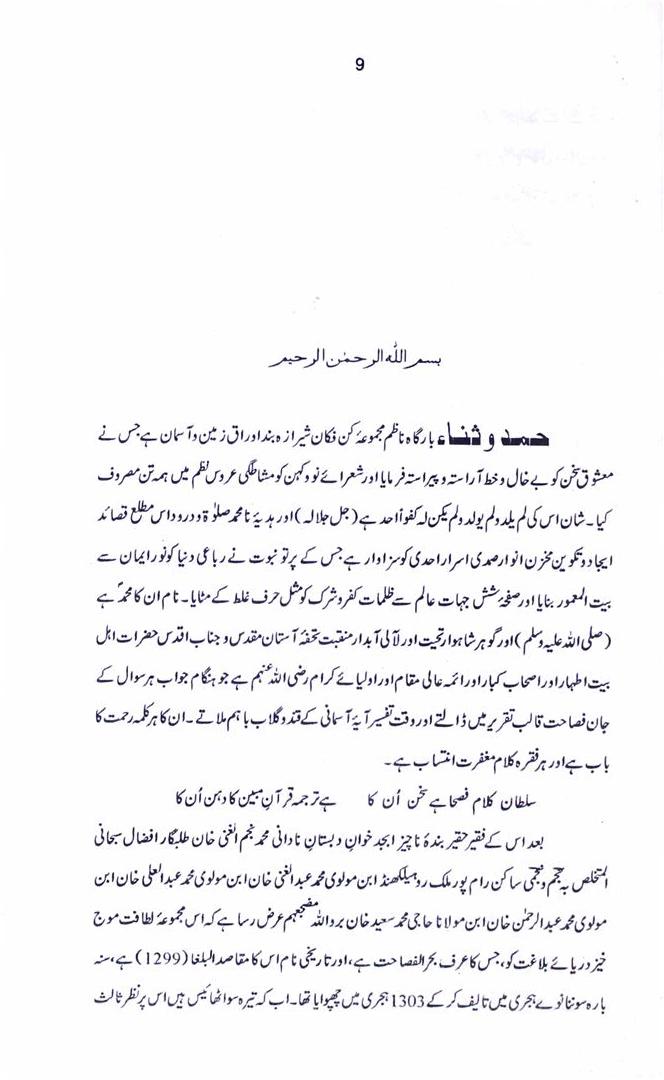 9
بسم اللہ الرحمٰن الرحیم
حمد و ثناء بارگاہ ناظم مجموعۂ کن فکان شیرازہ بند اوراق زمین و آسمان ہے جس نے
معشوق سخن کو بے خال و خط آراستہ و پیراستہ فرمایا اور شعرائے نو و کہن کو مشاطگی عروس نظم میں ہمہ تن مصروف
کیا۔ شان اس کی لم یلد ولم یولد ولم یکن لہ کفواً احد ہے (جل جلالہ) اور ہدیۂ نامحمد صلوٰۃ و درود اس مطلع قصائد
ایجاد و تکوین مخزن انوار صمدی اسرار احدی کو سزاوار ہے جس کے پرتو نبوت نے رباعی دنیا کو نور ایمان سے
بیت المعمور بنایا اور صفحۂ شش جہات عالم سے ظلمات کفر و شرک کو مثل حرف غلط کے مٹایا۔ نام ان کا محمدؐ ہے
(صلی اللہ علیہ وسلم) اور گوہر شاہوار تحیت اور لآلی آبدار منقبت تحفۂ آستان مقدس و جناب اقدس حضرات اہل
بیت اطہار اور اصحاب کبار اور ائمہ عالی مقام اور اولیائے کرام رضی اللہ عنہم ہے جو ہنگام جواب ہر سوال کے
جان فصاحت قالب تقریر میں ڈالتے اور وقت تفسیر آیۂ آسمانی کے قند و گلاب باہم ملاتے۔ ان کا ہر کلمہ رحمت کا
باب ہے اور ہر فقرہ کلام مغفرت انتساب ہے۔
سلطان کلام فصحا ہے سخن اُن کا ہے ترجمہ قرآن مبین کا دہن اُن کا
بعد اس کے فقیر حقیر بندۂ ناچیز ابجد خوان دبستان نادانی محمد نجم الغنی خان طلبگار افضال سبحانی
المتخلص بہ نجم و نجمی ساکن رام پور ملک روہیلکھنڈ ابن مولوی محمد عبدالغنی خان ابن مولوی محمد عبدالعلی خان ابن
مولوی محمد عبدالرحمٰن خان ابن مولانا حاجی محمد سعید خان برد اللہ مضجعہم عرض رسا ہے کہ اس مجموعۂ لطافت موج
خیز دریائے بلاغت کو، جس کا عرف بحر الفصاحت ہے، اور تاریخی نام اس کا مقاصد البلغا (1299) ہے، سنہ
بارہ سو ننانوے ہجری میں تالیف کر کے 1303 ہجری میں چھپوایا تھا۔ اب کہ تیرہ سو اٹھائیس ہیں اس پر نظر ثالث